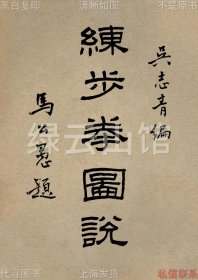 黑白复印 清晰如图 不是原书
吳志青編
練步拳圖說
馬公愚題
绿云山馆
代寻图书 上海发货 私信联系